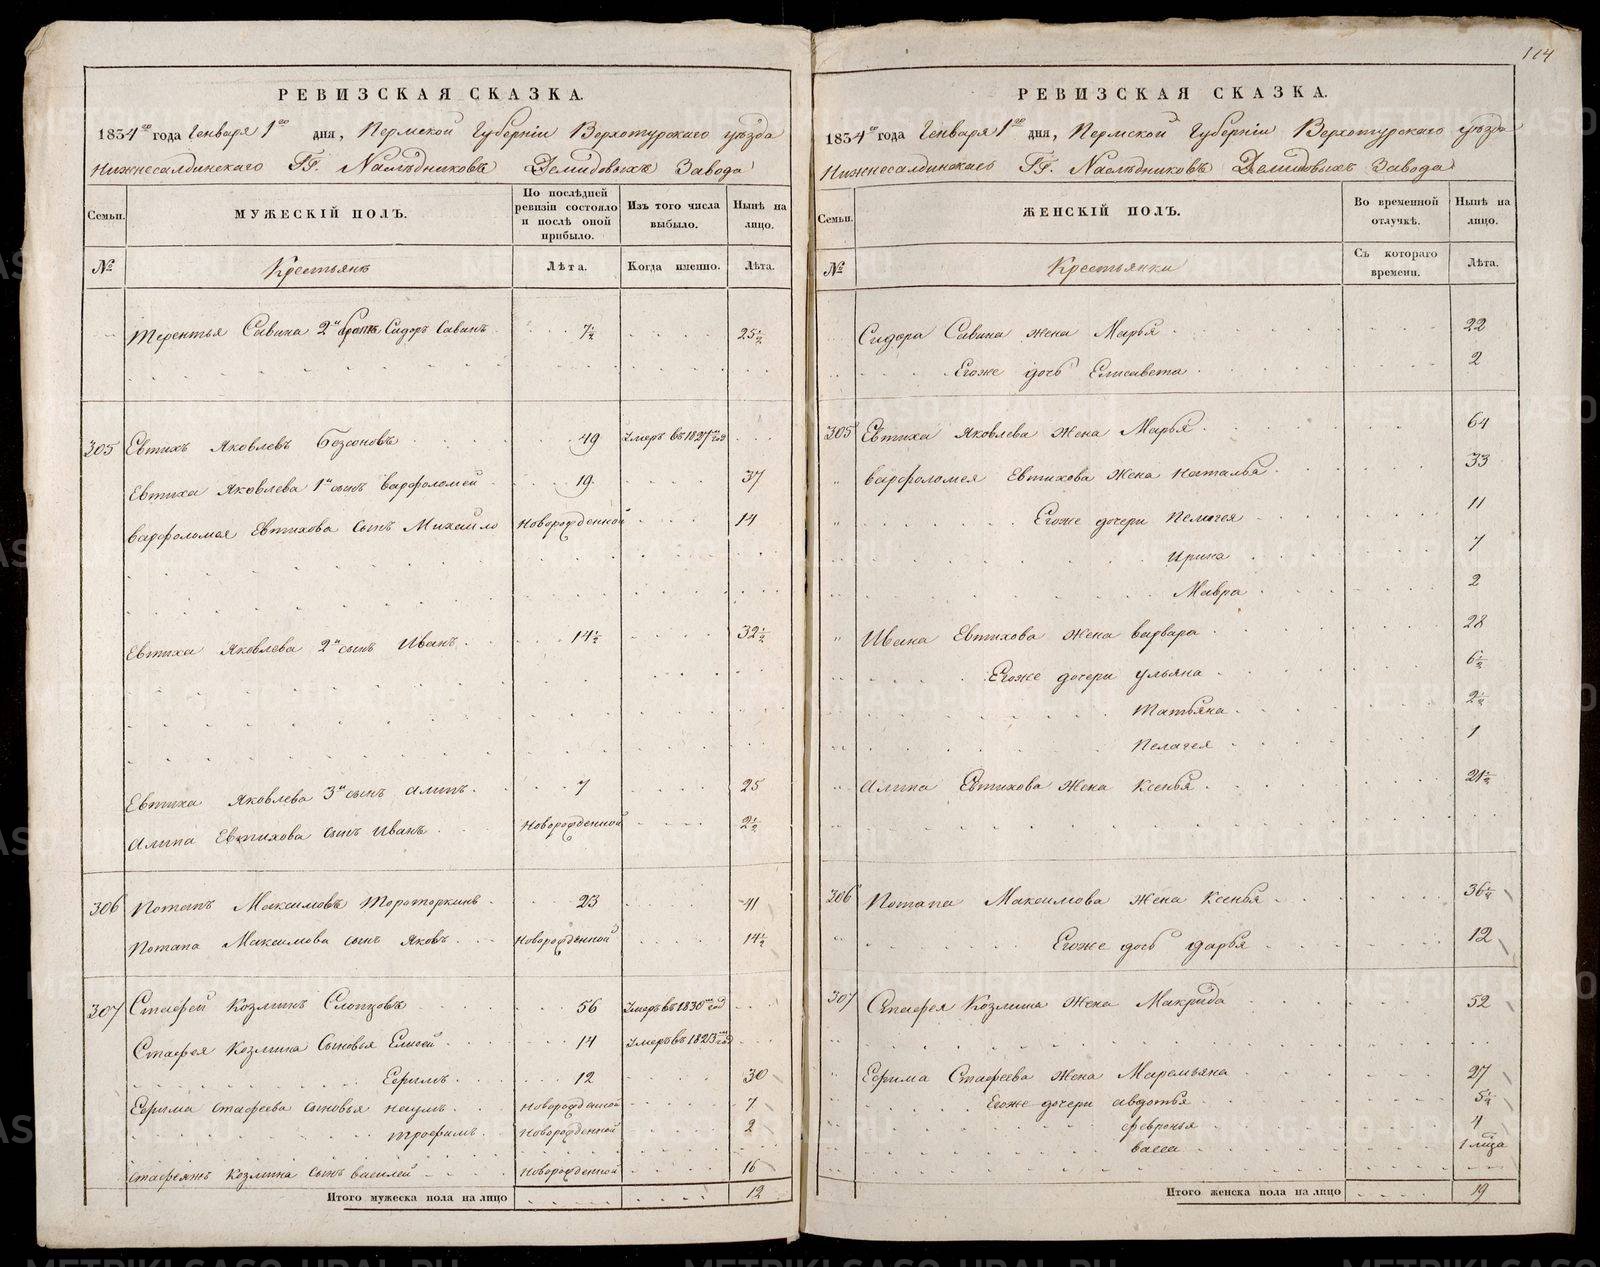 114
РЕВИЗСКАЯ СКАЗКА.
1834го года Генваря 1го дня, Пермской Губерніи Верхотурскаго уѣзда
Нижнесалдинскаго ГГ. Наслѣдниковъ Демидовыхъ Завода
Семьи. МУЖЕСКІЙ ПОЛЪ. По послѣдней ревизіи состояло и послѣ оной прибыло. Изъ того числа выбыло. Нынѣ на лицо.
№ Крестьянъ Лѣта. Когда именно. Лѣта.
Терентья Савина 2й братъ Сидоръ Савинъ 7½ 25½
305 Евтихъ Яковлевъ 49 Умеръ въ 1827мъ годѣ
Евтиха Яковлева 1й сынъ Варфоломей 19 37
Варфоломея Евтихова сынъ Михайло Новорожденной 14
Евтиха Яковлева 2й сынъ Иванъ 14½ 32½
Евтиха Яковлева 3й сынъ Алипъ 7 25
Алипа Евтихова сынъ Иванъ Новорожденной 2½
306 Потапъ Максимовъ Тороторкинъ 23 41
Потапа Максимова сынъ Яковъ Новорожденной 14½
307 Стафей Козминъ Слопцовъ 56 Умеръ въ 1830мъ год
Стафея Козмина Сыновья Елисей 14 Умеръ въ 1823мъ год
Ефимъ 12 30
Ефима Стафеева сыновья Наумъ Новорожденной 7
Трофимъ Новорожденной 2
Козмина Сынъ Василей Новорожденной 16
Итого мужеска пола на лицо 12
РЕВИЗСКАЯ СКАЗКА.
1834го года Генваря 1го дня, Пермской Губерніи Верхотурскаго уѣзда
Нижнесалдинскаго ГГ. Наслѣдниковъ Демидовыхъ Завода
Семьи. ЖЕНСКІЙ ПОЛЪ. Во временной отлучкѣ. Нынѣ на лицо.
№ Крестьянки Съ котораго времени. Лѣта.
Сидора Савина жена Марья 22
Егоже дочь Елисавета 2
305 Евтиха Яковлева жена Марья 64
Варфоломея Евтихова жена Наталья 33
Егоже дочери Пелагея 11
Ирина 7
Мавра 2
Ивана Евтихова жена Варвара 28
Егоже дочери Ульяна 6½
Татьяна 2½
Пелагея 1
Алипа Евтихова жена Ксенья 21½
306 Потапа Максимова жена Ксенья 36½
Егоже дочь Дарья 12
307 Стафея Козмина жена Макрида 52
Ефима Стафеева жена Маремьяна 27
Егоже дочери Авдотья 5½
Февронья 4
Васса 1
Итого женска пола на лицо 19
METRIKI.GASO-URAL.RU